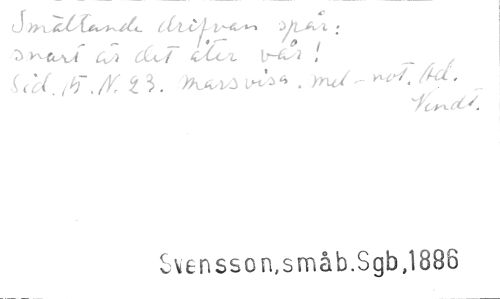 Smältande drifvan spår:
snart är det åter vår!
Sid. 15. N. 23. Marsvisa. mel-not. Ad.
Vendt.
Svensson,småb.Sgb,1886